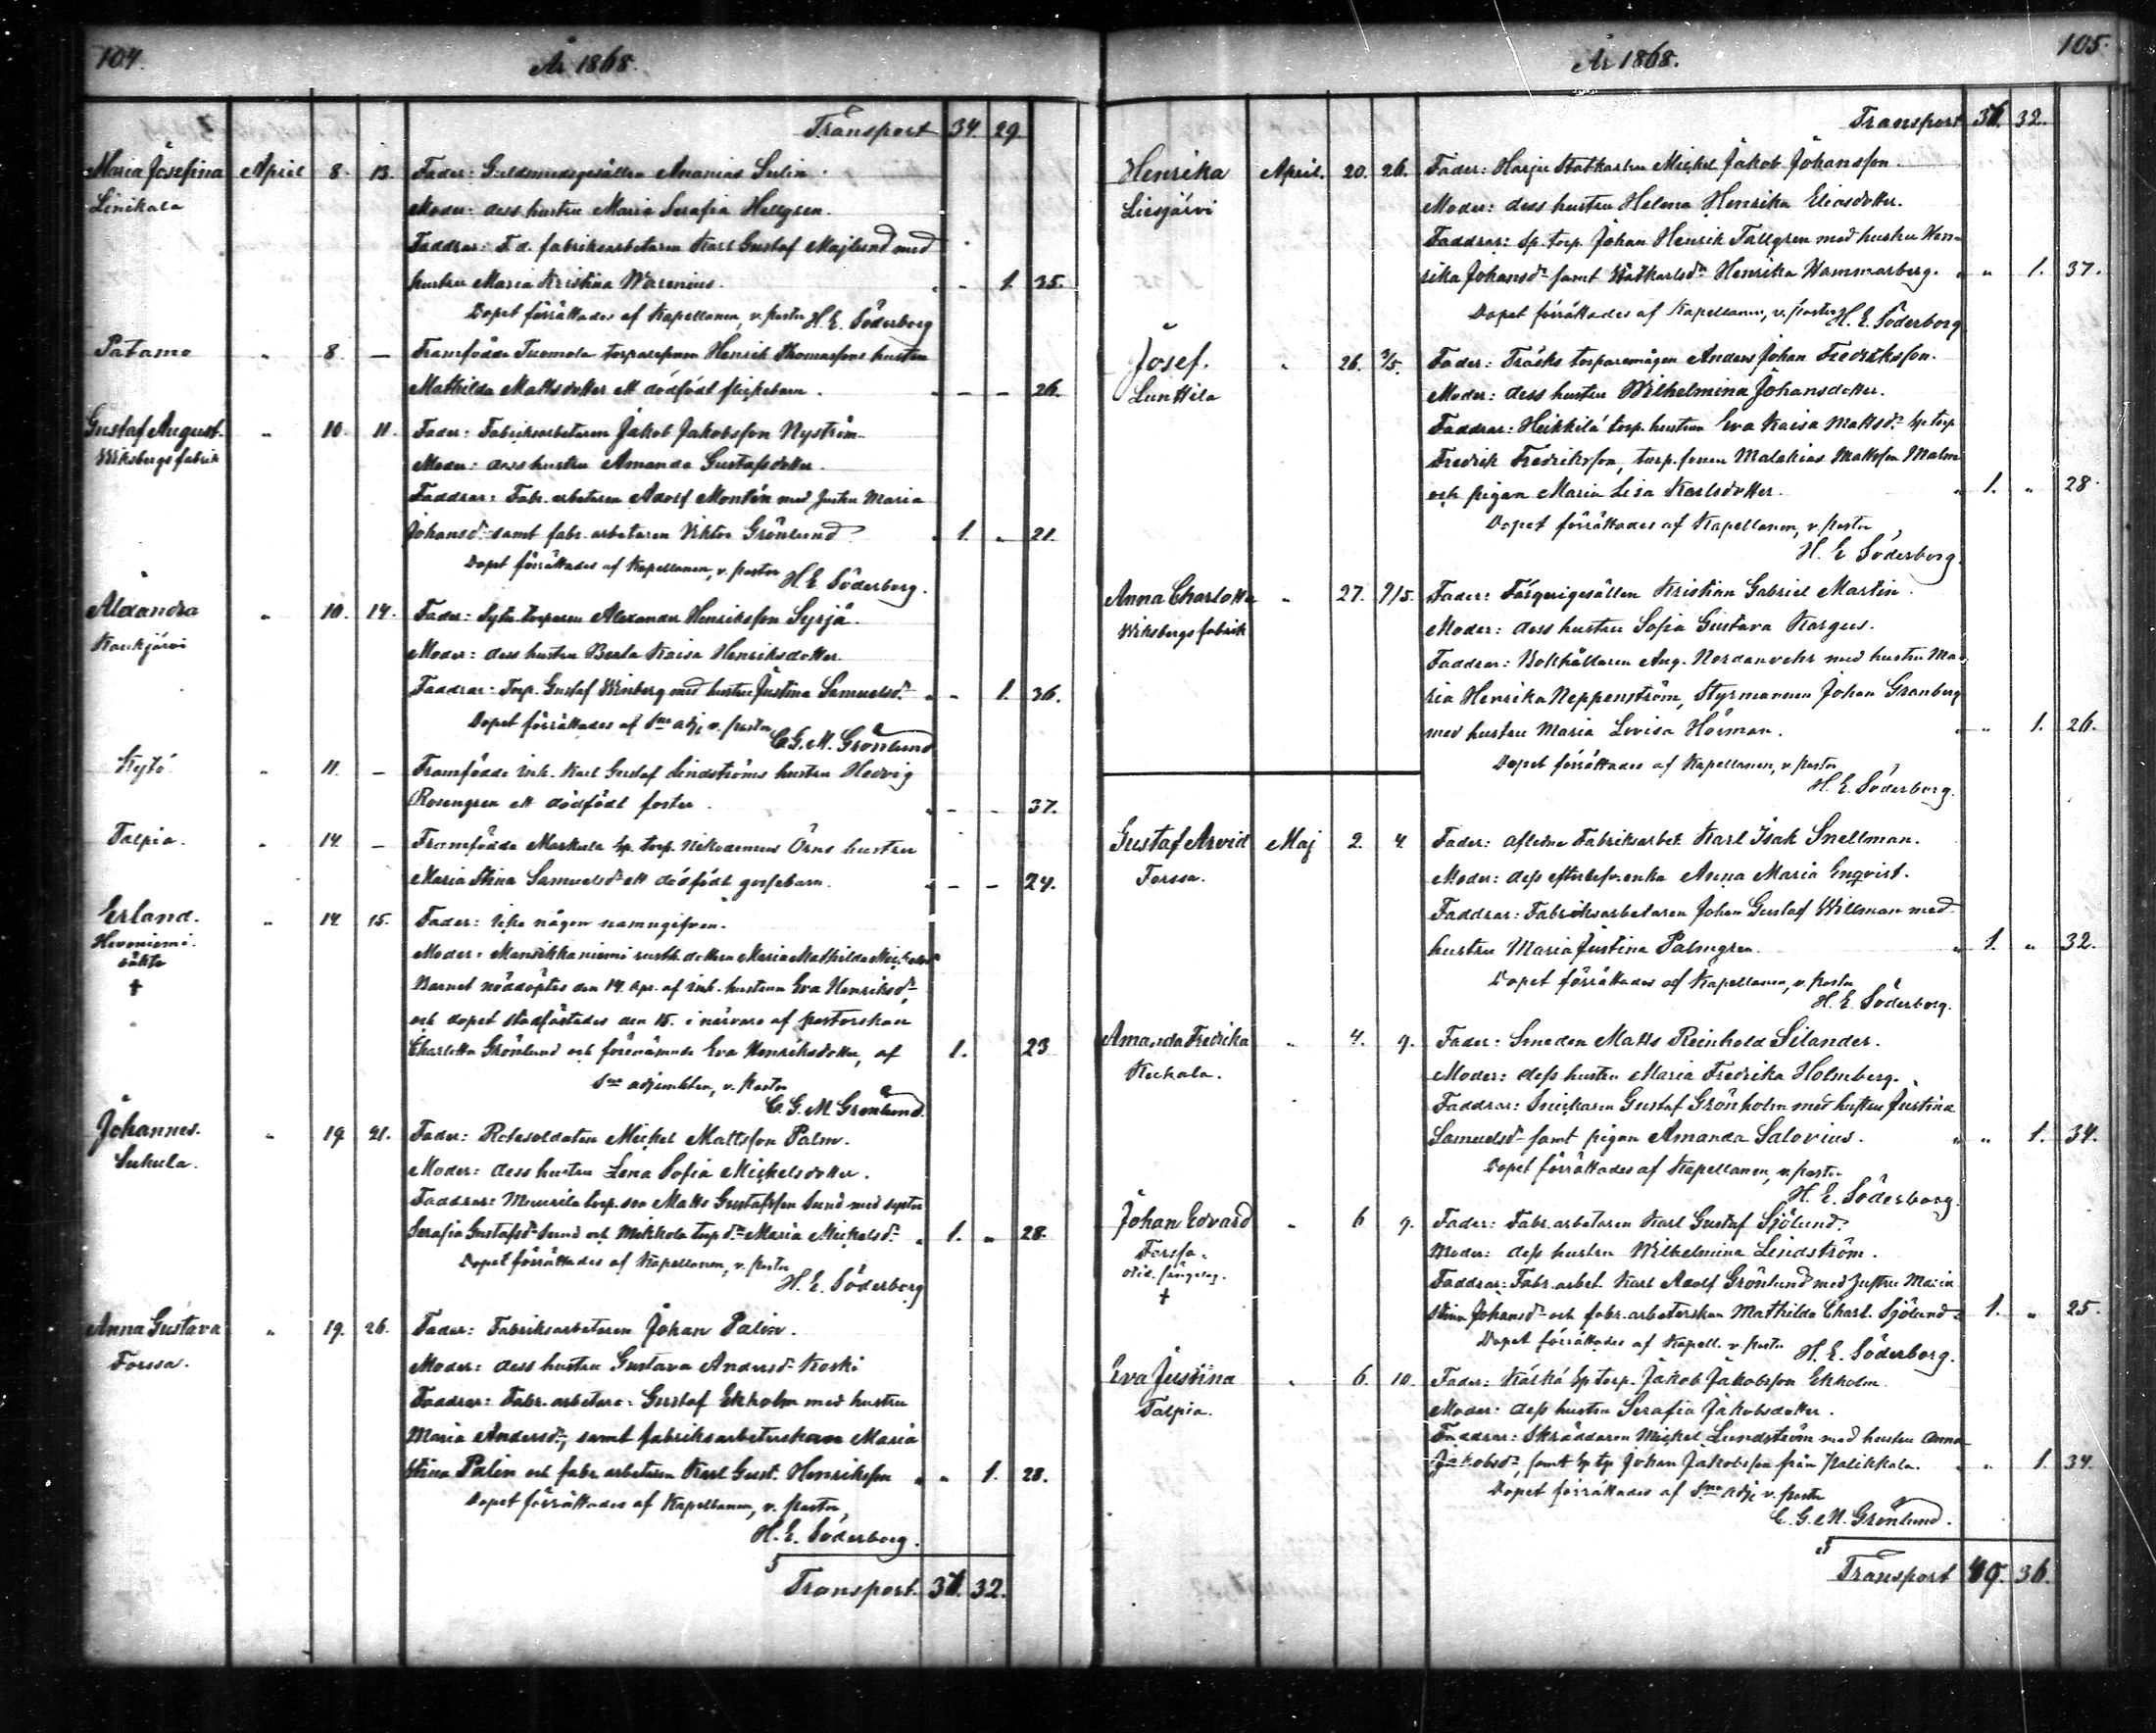 104.
År 1868.
Transport 34. 29.
Maria Josefina April 8. 13. Fader: Guldsmedsgesällen Ananias Sulin.
Linikala Moder: dess hustru Maria Serafia Hellgren.
Faddrar: F. d. fabriksarbetaren Karl Gustaf Majlund med
hustru Maria Kristina Warenius. " - 1. 25.
Dopet förrättades af Kapellanen, v. pastor H. E. Söderborg
Patamo " 8. — Framfödde Tuomola torparesonen Henrik Thomassons hustru
Mathilda Mattsdotter ett dödfödt flickebarn. " - - 26.
Gustaf August. " 10. 11. Fader: Fabriksarbetaren Jakob Jakobsson Nyström.
Wiksbergs fabrik Moder: dess hustru Amanda Gustafsdotter.
Faddrar: Fabr. arbetaren Adolf Montén med hustru Maria
Johansd:r samt fabr. arbetaren Viktor Grönlund. " 1. " 21.
Dopet förrättades af Kapellanen, v. pastor H. E. Söderborg.
Alexandra " 10. 14. Fader: torparen Alexander Henriksson Syrjä.
Kaukjärvi Moder: dess hustru Beata Kaisa Henriksdotter.
Faddrar: Torp. Gustaf Winberg med hustru Justina Samuelsd:r " - 1. 36.
Dopet förrättades af S:ne adj. v. pastor
C. G. M. Grönlund
Kytö " 11. — Framfödde inh. Karl Gustaf Lindströms hustru Hedvig
Rosengren ett dödfödt foster. " - - 37.
Talpia. " 14. — Framfödde Markula sp. torp. Nikodemus Örns hustru
Maria Stina Samuelsd:r ett dödfödt gossebarn. " - - 24.
Erland. " 14. 15. Fader: icke någon namngifven.
Hevoniemi. Moder: Mansikkaniemi rusth. dottren Maria Mathilda
oäkta Barnet nöddöptes den 14. Apr. af inh. hustrun Eva Henriksd:r,
† och dopet stadfästades den 15. i närvaro af pastorskan
Charlotta Grönlund och förenämnde Eva Henriksdotter, af 1. 23
S:ne adjunkten, v. Pastor
C. G. M. Grönlund.
Johannes. " 19. 21. Fader: Rotesoldaten Mickel Mattsson Palm.
Suhula. Moder: dess hustru Lena Sofia Mickelsdotter.
Faddrar: torp. son Matts Gustafsson Sund med syster
Serafia Gustafsd:r Sund och Mikkola torp d:r Maria Mickelsd:r " 1. " 28.
Dopet förrättades af Kapellanen, v. pastor
H. E. Söderborg
Anna Gustava " 19. 26. Fader: Fabriksarbetaren Johan Palin.
Forssa. Moder: dess hustru Gustava Andersd:r Koski
Faddrar: Fabr. arbetare: Gustaf Ekholm med hustru
Maria Andersd:r, samt fabriksarbeterskan Maria
Stina Palin och fabr. arbetaren Karl Gust. Henriksson " " 1. 28.
Dopet förrättades af Kapellanen, v. pastor,
H. E. Söderborg.
Transport. 37. 32.
105.
År 1868.
Transport 37. 32.
Henrika April. 20. 26. Fader: Harju Statkarlen Mickel Jakob Johansson.
Liesjärvi Moder: dess hustru Helena Henrika Eliasdotter.
Faddrar: Sp. torp. Johan Henrik Tallgren med hustru Hen-
rika Johansd:r samt Statkarlsd:r Henrika Hammarberg. " " 1. 37.
Dopet förrättades af Kapellanen, v. pastor H. E. Söderborg
Josef. " 26. 3/5. Fader: Träsks torparemågen Anders Johan Fredriksson.
Lunttila Moder: dess hustru Wilhelmina Johansdotter.
Faddrar: Heikkilä torp. hustrun Eva Kaisa Mattsd:r sp. torp
Fredrik Fredriksson, torp. sonen Malakias Mattsson Malm
och pigan Maria Lisa Karlsdotter. " 1. " 28.
Dopet förrättades af Kapellanen, v. pastor
H. E. Söderborg.
Anna Charlotta " 27. 9/5. Fader: Färgerigesällen Kristian Gabriel Martin.
Wiksbergs fabrik Moder: dess hustru Sofia Gustava Kargus.
Faddrar: Bokhållaren Aug. Nordanvehr med hustru Ma-
ria Henrika Neppenström, Styrmannen Johan Granberg
med hustru Maria Lovisa Hörman. " " 1. 26.
Dopet förrättades af Kapellanen, v. pastor
H. E. Söderborg.
Gustaf Arvid Maj 2. 4. Fader: aflidne Fabriksarbet. Karl Isak Snellman.
Forssa. Moder: dess efterlefv. enka Anna Maria Enqvist.
Faddrar: Fabriksarbetaren Johan Gustaf Willman med
hustru Maria Justina Palmgren. " 1. " 32.
Dopet förrättades af Kapellanen, v. pastor
H. E. Söderborg.
Amanda Fredrika " 4. 9. Fader: Smeden Matts Reinhold Silander.
Kuhala. Moder: dess hustru Maria Fredrika Holmberg.
Faddrar: Snickaren Gustaf Grönholm med hustru Justina
Samuelsd:r samt pigan Amanda Salovius. " " 1. 34.
Dopet förrättades af Kapellanen, v. pastor
H. E. Söderborg.
Johan Edvard " 6 9. Fader: Fabr. arbetaren Karl Gustaf Sjölund.
Forssa. Moder: dess hustru Wilhelmina Lindström.
Faddrar: Fabr. arbet. Karl Adolf Grönlund med hustru Maria
† Stina Johansd:r och fabr. arbeterskan Mathilda Charl. Sjölund 1. " 25.
Dopet förrättades af Kapell. v. pastor H. E. Söderborg.
Eva Justina " 6. 10. Fader: Kärkä sp. torp. Jakob Jakobsson Ekholm.
Talpia. Moder: dess hustru Serafia Jakobsdotter.
Faddrar: Skräddaren Mickel Lundström med hustru Anna
Jakobsd:r, samt sp. tp. Johan Jakobsson från Palikkala. " " 1. 34.
Dopet förrättades af S:ne adj. v. pastor
C. G. M. Grönlund.
Transport 40. 36.